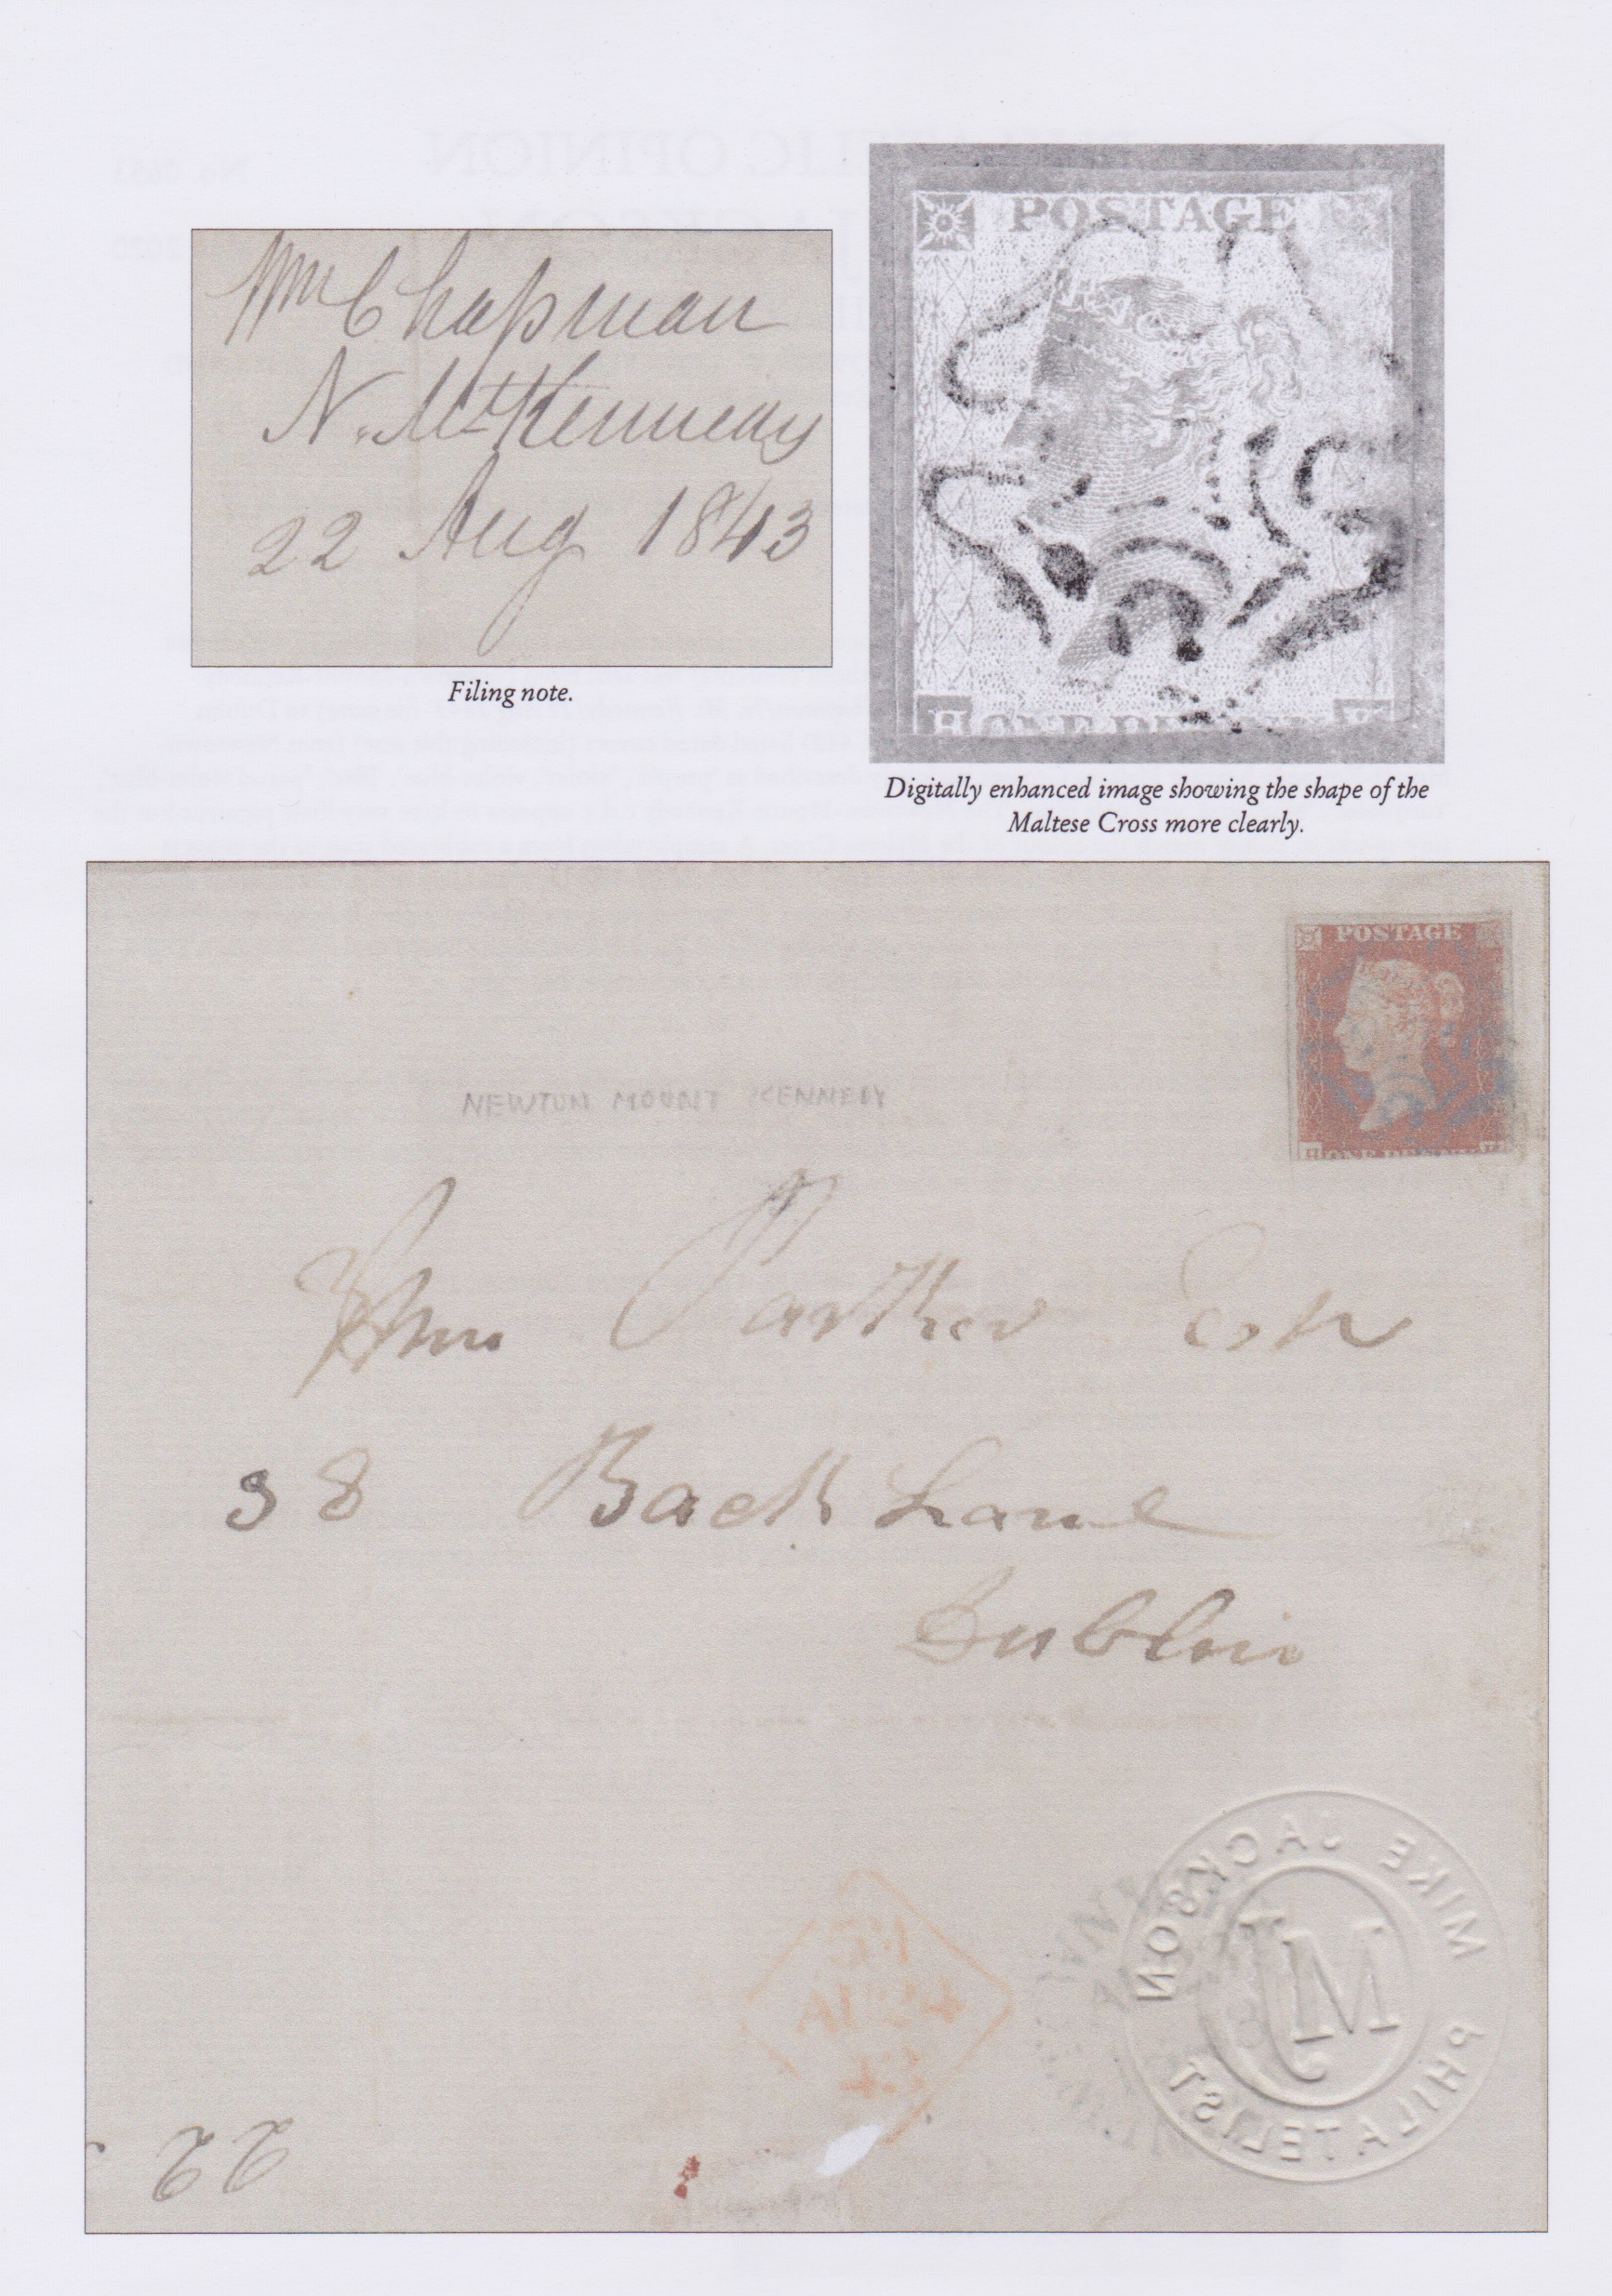 Wm Chapman
N. Mt Kennedy
22 Aug 1843
Filing note.
POSTAGE
H ONE PENNY
Digitally enhanced image showing the shape of the
Maltese Cross more clearly.
POSTAGE
H ONE PENNY
NEWTON MOUNT KENNEDY
Parker Esq
38 Back Lane
Dublin
MIKE JACKSON
MJ
PHILATELIST
22